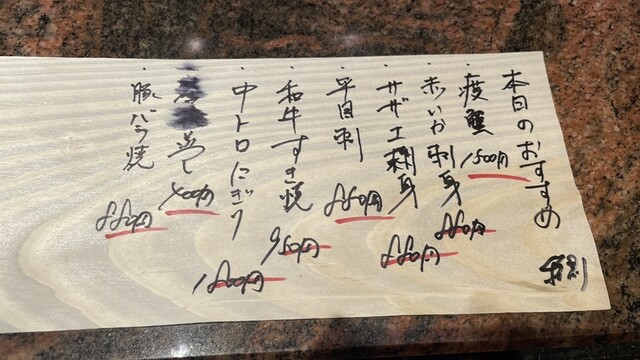 本日のおすすめ
税別
渡蟹 1,500円
赤いか刺身 880円
サザエ刺身 880円
平目刺 880円
和牛すき焼 950円
中トロにぎり 1,800円
蒸し 700円
豚バラ焼 880円